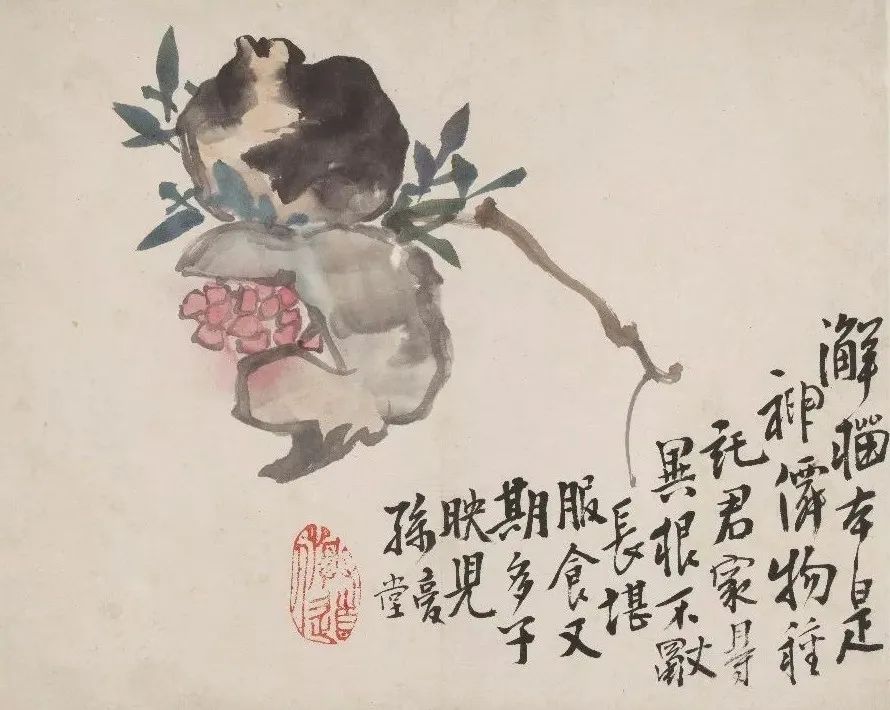 澥榴本是
神僊物種
託君家得
異根不獨
長堪
服食又
期多子
映兒
孫
堂